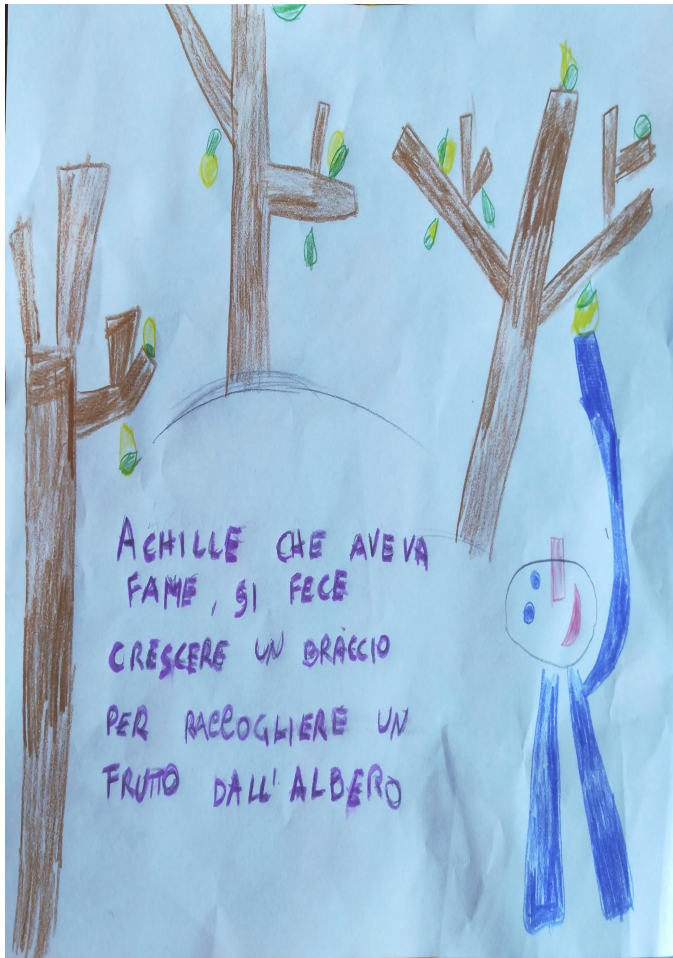 ACHILLE CHE AVEVA
FAME, SI FECE
CRESCERE UN BRACCIO
PER RACCOGLIERE UN
FRUTTO DALL'ALBERO